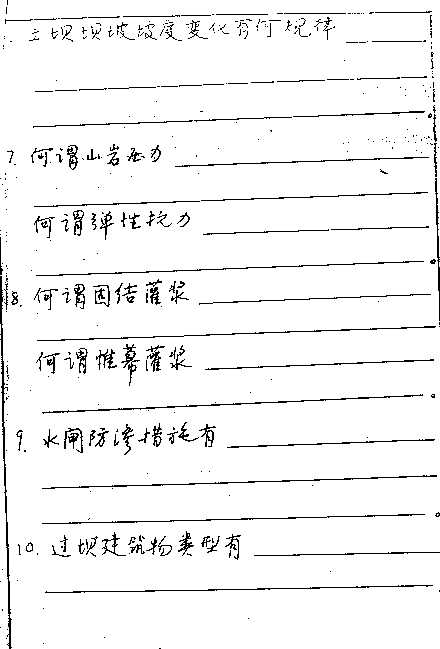 土坝坝坡坡度变化有何规律
。
7. 何谓山岩压力
何谓弹性抗力
。
8. 何谓固结灌浆
何谓帷幕灌浆
。
9. 水闸防渗措施有
。
10. 过坝建筑物类型有